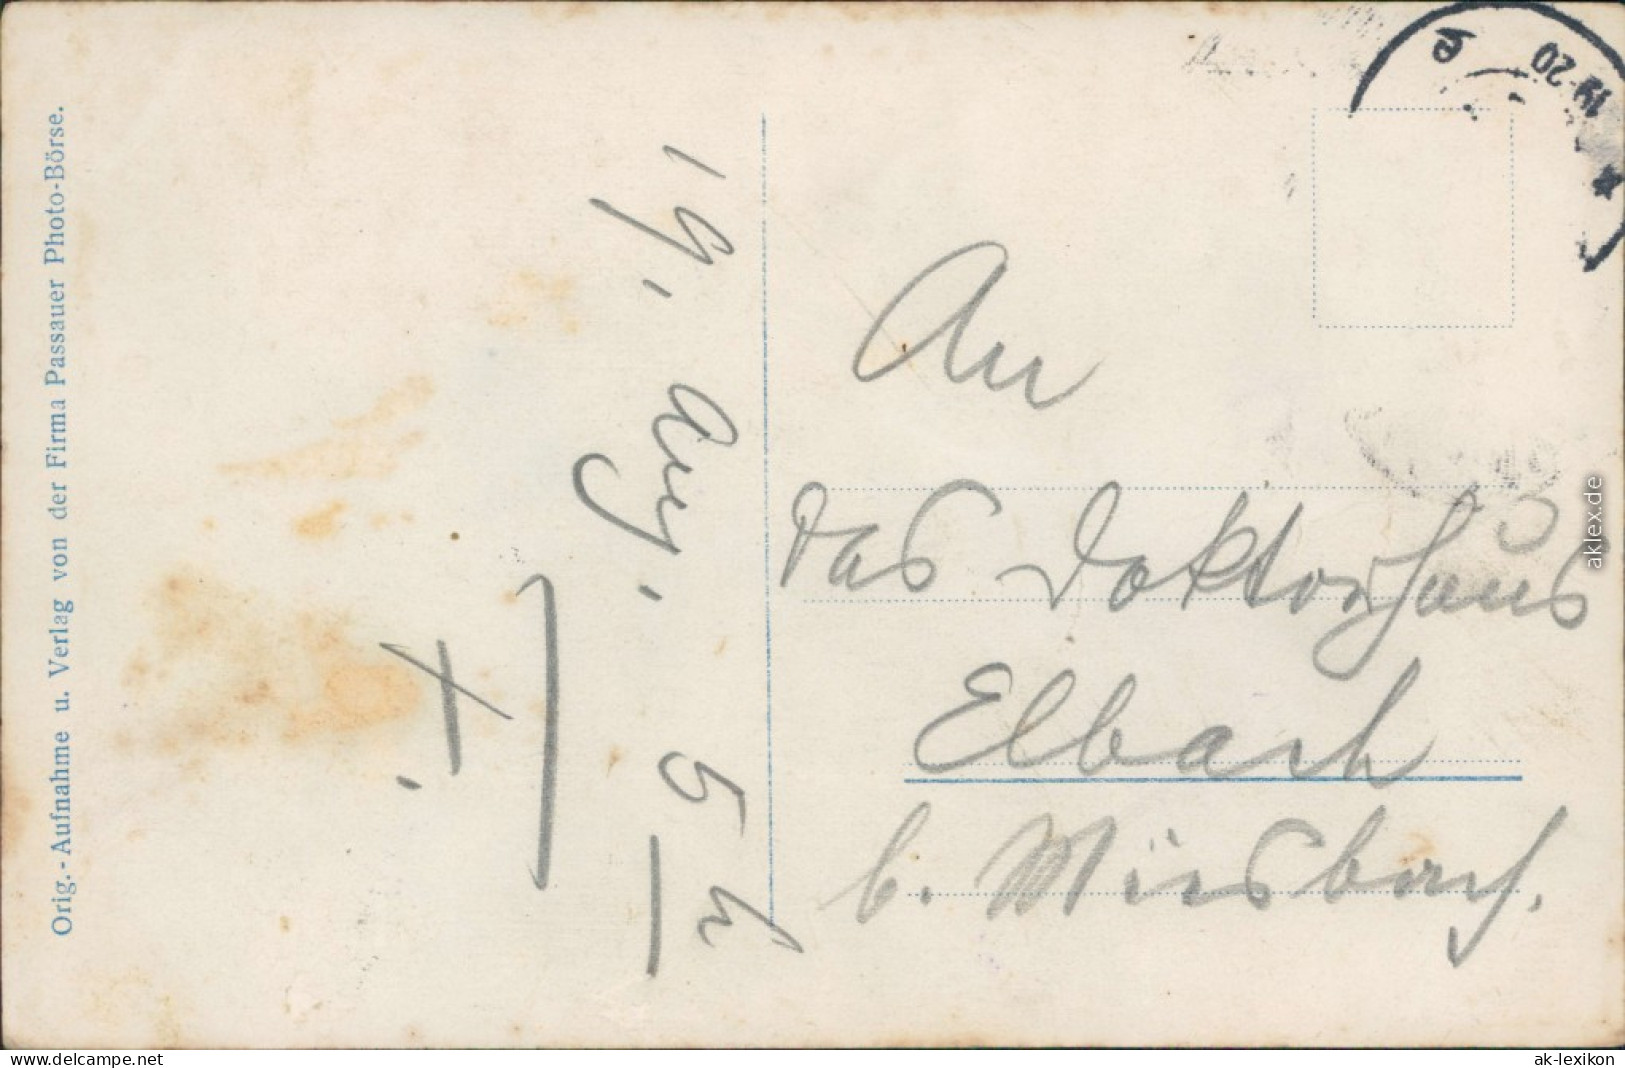 Orig.-Aufnahme u. Verlag von der Firma Passauer Photo-Börse.
19. Aug. 5 h
An
das Doktorhaus
Elbach
b. Miesbach.
e 19-20 *
aklex.de
www.delcampe.net
ak-lexikon